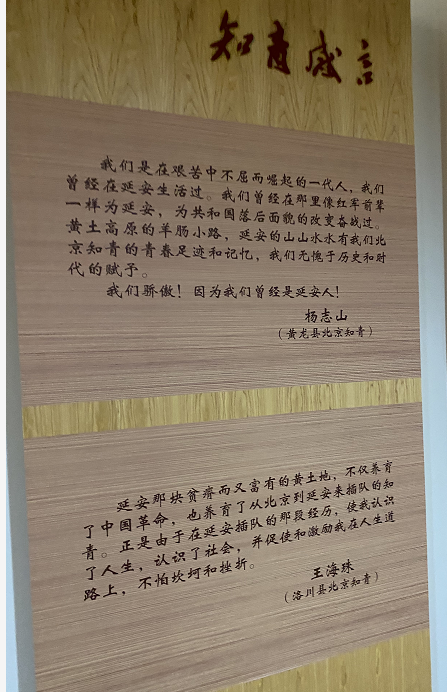 知青感言
我们是在艰苦中不屈而崛起的一代人，我们
曾经在延安生活过。我们曾经在那里像红军前辈
一样为延安，为共和国落后面貌的改变奋战过。
黄土高原的羊肠小路，延安的山山水水有我们北
京知青的青春足迹和记忆，我们无愧于历史和时
代的赋予。
我们骄傲！因为我们曾经是延安人！
杨志山
（黄龙县北京知青）
延安那块贫瘠而又富有的黄土地，不仅养育
了中国革命，也养育了从北京到延安来插队的知
青。正是由于在延安插队的那段经历，使我认识
了人生，认识了社会，并促使和激励我在人生道
路上，不怕坎坷和挫折。
王海珠
（洛川县北京知青）